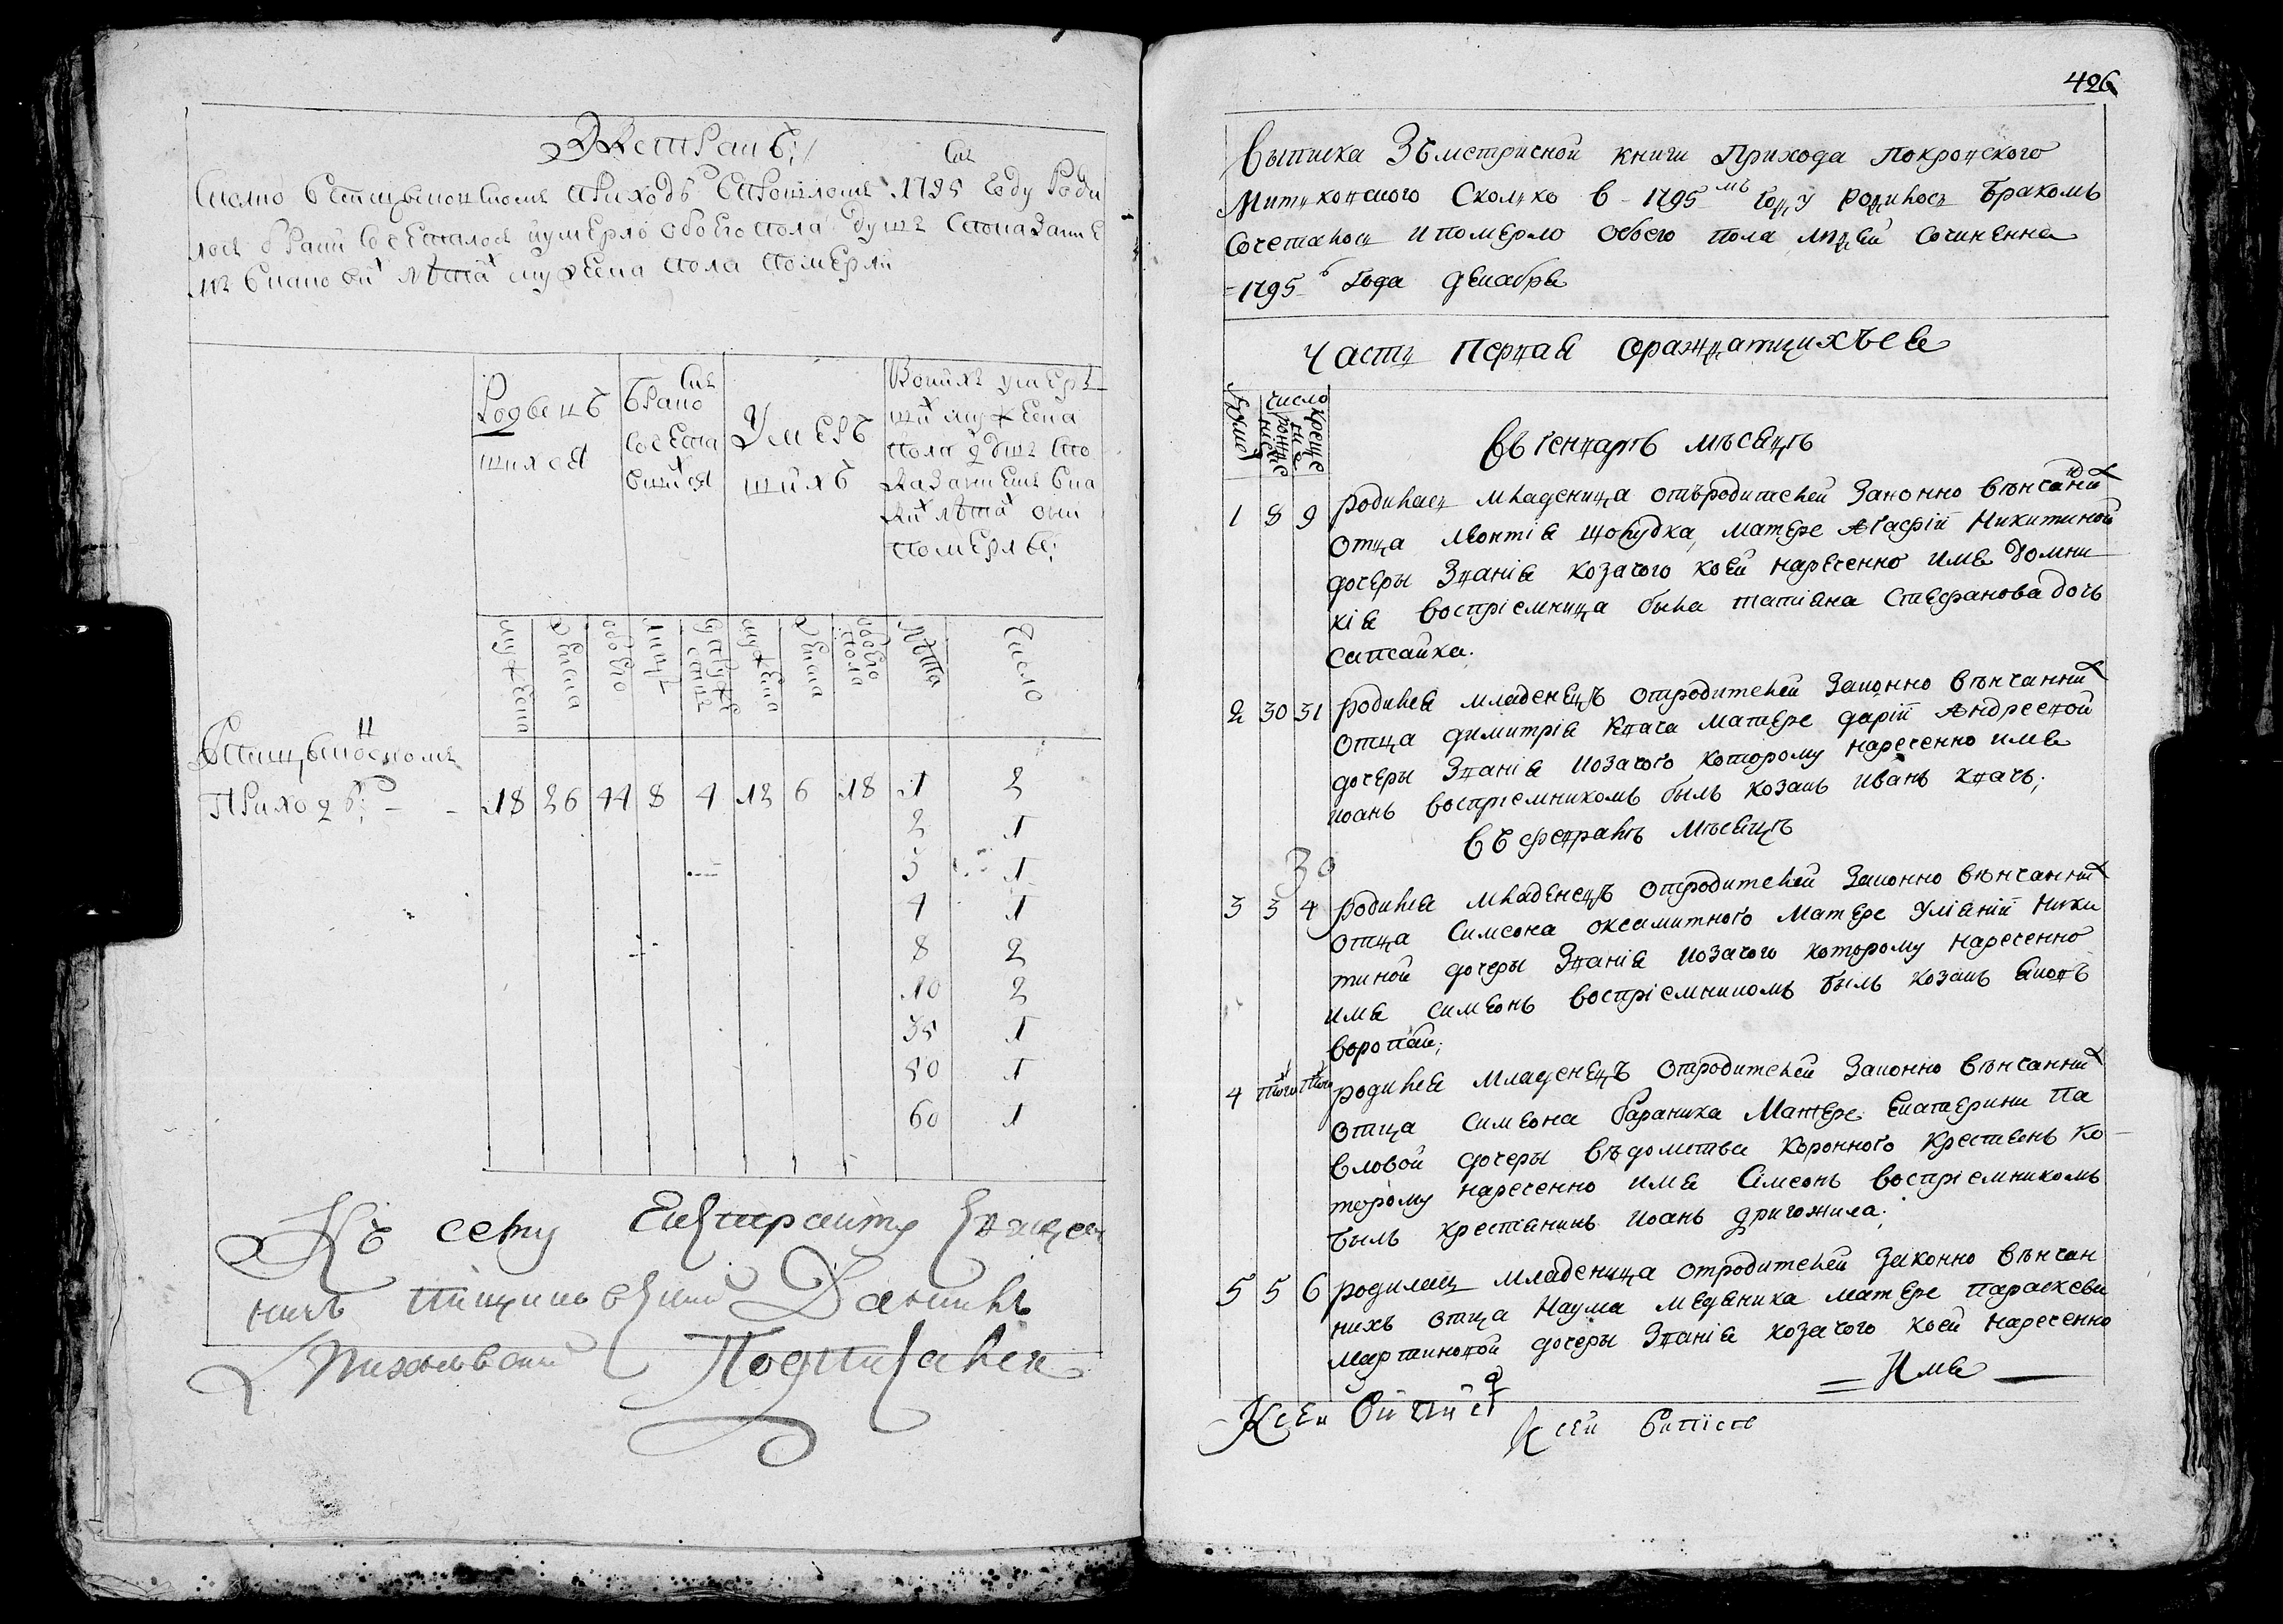 Екстрактъ;
Сколко в Пищиковском приходѣ в прошломъ 1795 году роди
лось браком сочеталось и умерло обоего пола душъ с показание
мъ в каковы лѣта мужеска пола померли
Родвсш
ихся
Браком
сочета
вшихся
Умерш
ихъ
В коихъ умер
ших мужеска
пола душъ с по
казаниемъ в ка
ких лѣтах они
померлы;
мужеска
женска
обоего
лицъ
супружествъ
мужеска
женска
обоего пола
лѣта
число
приходѣ; - - 18 26 44 8 4 12 6 18 1 2
2 1
3 1
4 1
8 2
10 2
35 1
50 1
60 1
Къ сему Екстракту священ
никъ Даниилъ
Подписался
426
Выписка Зъ метрисной книги Прихода Покровского
Митковского Сколко в 1795 мъ году родилось бракомъ
сочеталось и померло обоего пола людей сочиненна
1795 года декабря
Часть первая о раждающихъся
Нумер
число
рождения
крещение
Въ генварѣ мѣсяцѣ
1 8 9 родилась младеница отъ родителей законно вѣнчаних
отца Леонтия Щолудка, матере Агафіи Никитиной
дочеры званія козачого коей нареченно имя Домни
кія воспріемница была татіяна Стефанова дочь
Сапсайка.
2 30 31 родился младенецъ от родителей законно вѣнчанних
отца димитрія Ткача матере дарій Андреевой
дочеры званія козачого которому нареченно имя
иоанъ воспріемникомъ былъ козакъ иванъ ткачъ;
Въ Февралѣ мѣсяцѣ
3 3 4 родился младенецъ от родителей законно вѣнчанних
отца Симеона оксамитного матере Уліяній Ники
тиной дочеры званія козачого которому нареченно
имя симеонъ воспріемникомъ былъ козакъ Яковъ
воропай;
4 того того родился младенецъ от родителей законно вѣнчанних
отца симеона бараника матере Екатерини Па
вловой дочеры вѣдомства коронного крестянъ ко
торому нареченно имя Симеонъ воспріемникомъ
былъ крестянинъ иоанъ дригожила;
5 5 6 родилась младеница от родителей законно вѣнчан
нихъ отца Наума медяника матере параскеви
мартиновой дочеры званія козачого коей нареченно
Имя
К сей Выпис
К сей випісѣ